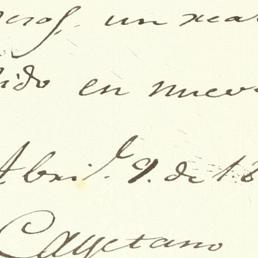 un rea
ido en nuev
Abril 9. de 18
Cayetano